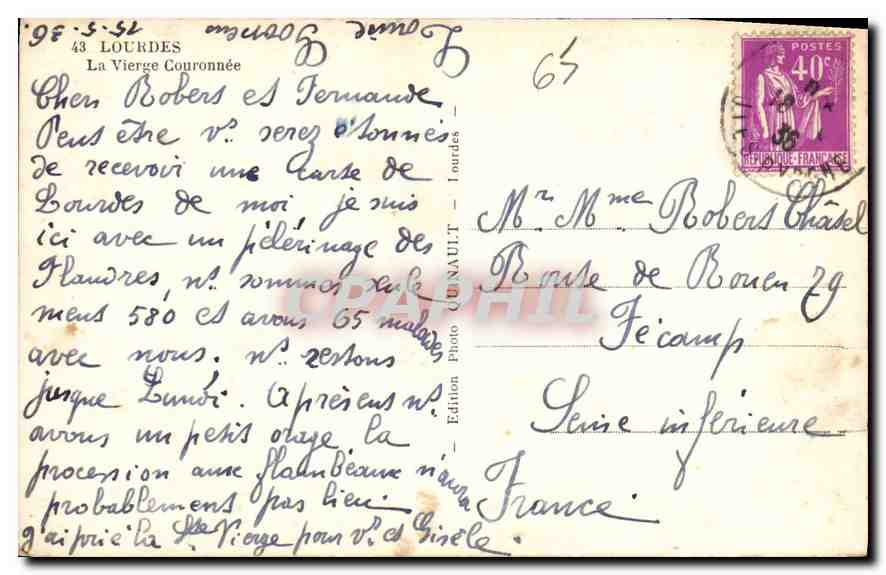 43 LOURDES
La Vierge Couronnée
Cher Robert et Fernande
Peut être vs. serez étonnés
de recevoir une carte de
Lourdes de moi, je suis
ici avec un pélérinage des
Flandres, ns. sommes seule
ment 580 et avons 65 malades
avec nous. ns. restons
jusque Lundi. Aprésent ns.
avons un petit orage la
procession aux flambeaux n'aura
probablement pas lieu
j'ai prié la Ste Vierge pour vs. et Gisèle.
15-5-36
65
Edition Photo QUINAULT — Lourdes
POSTES
40c
REPUBLIQUE-FRANÇAISE
36
Mr. Mme Robert Châtel
Route de Rouen 79
Fécamp
Seine inférieure
France
CPAPHIL